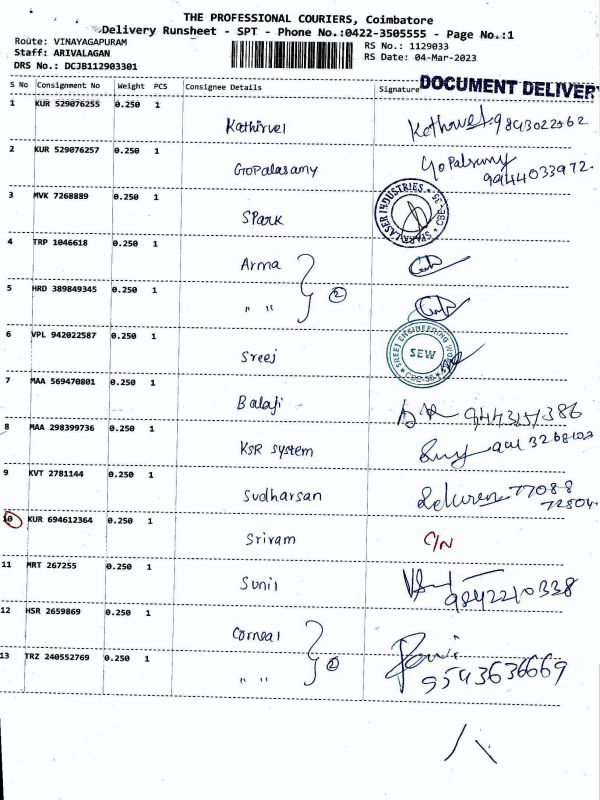 THE PROFESSIONAL COURIERS, Coimbatore
Delivery Runsheet - SPT - Phone No.:0422-3505555 - Page No.:1
Route: VINAYAGAPURAM
RS No.: 1129033
Staff: ARIVALAGAN
RS Date: 04-Mar-2023
DRS No.: DCJB112903301
DOCUMENT DELIVER
S No Consignment No Weight PCS Consignee Details Signature
1 KUR 529076255 0.250 1
Kathirvel 9843022062
2 KUR 529076257 0.250 1
GoPalasamy GoPalsamy
9944033972
3 MVK 7268889 0.250 1
SPark SPARK LASER INDUSTRIES CBE-35
4 TRP 1046618 0.250 1
Arma
5 HRD 389849345 0.250 1 2
" "
6 VPL 942022587 0.250 1
Sreej SREEJ ENGINEERING SEW
7 MAA 569470801 0.250 1
Balaji
8 MAA 298399736 0.250 1
KSR System
9 KVT 2781144 0.250 1
Sudharsan 77088
72504
10 KUR 694612364 0.250 1
Sriram C/N
11 MRT 267255 0.250 1
Sunil 9842210338
12 HSR 2659869 0.250 1
Corneal
13 TRZ 240552769 0.250 1 2
" " 9543636669